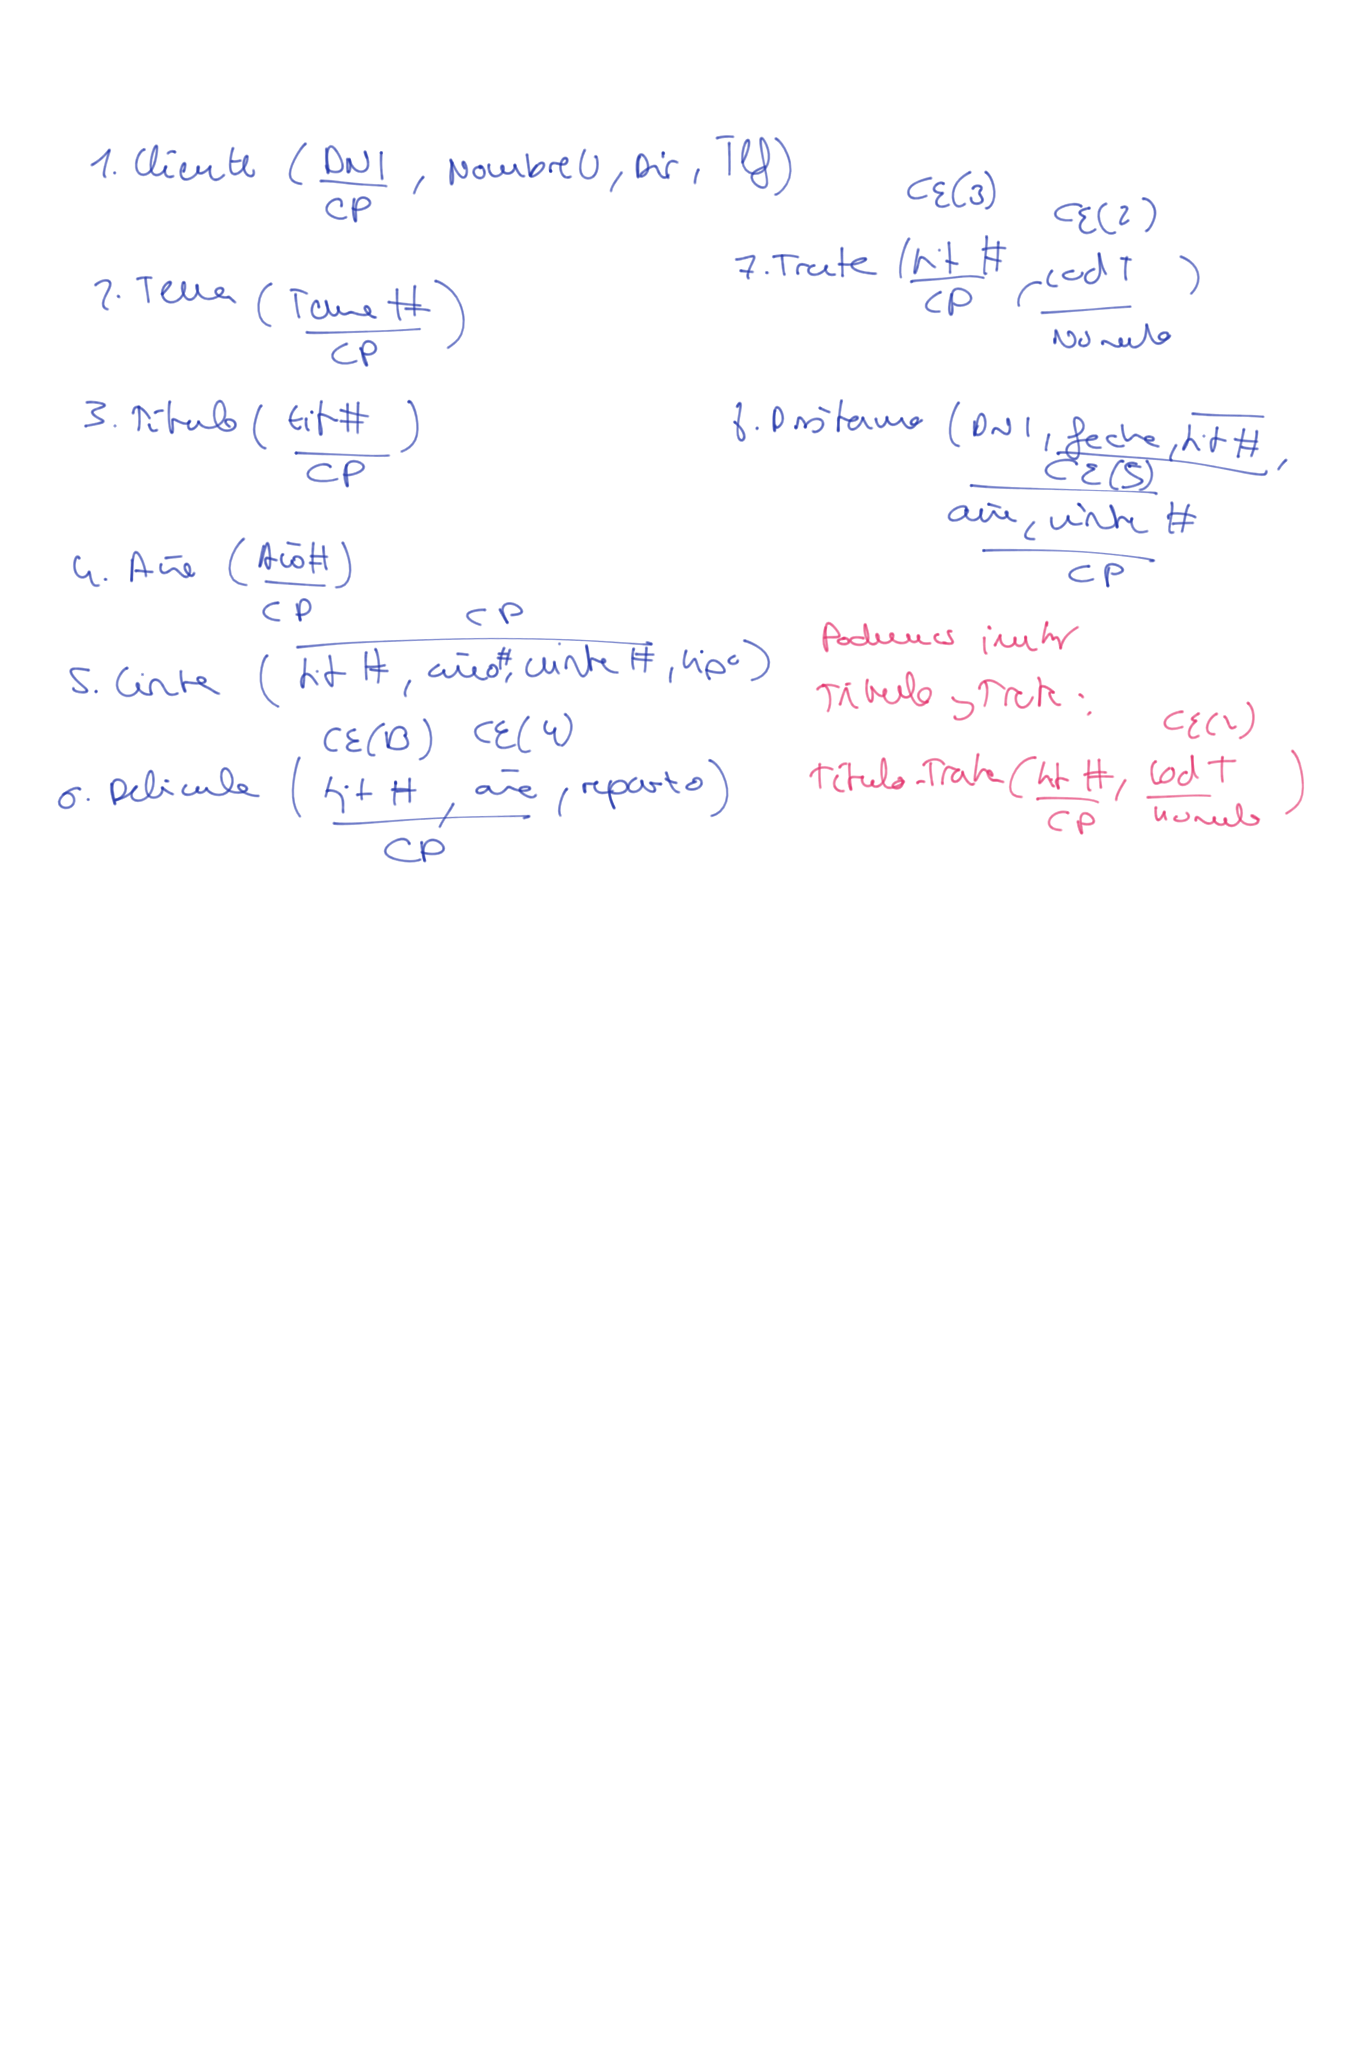 1. Cliente (DNI, NombreU, Dir, Tlf)
CP
2. Tema (Tema #)
CP
3. Título (tit#)
CP
4. Año (Año#)
CP
CP
5. Cinta (tit #, año#, cinta #, tipo)
CE(3) CE(4)
6. Pelicula (tit #, año, reparto)
CP
CE(3) CE(2)
7. Trata (tit #, cod T)
CP No nulo
8. Préstamo (DNI, fecha, tit #,
CE(5)
año, cinta #
CP
Podemos juntar
Título y Trata:
CE(2)
Título-Trata (tit #, cod T)
CP no nulo